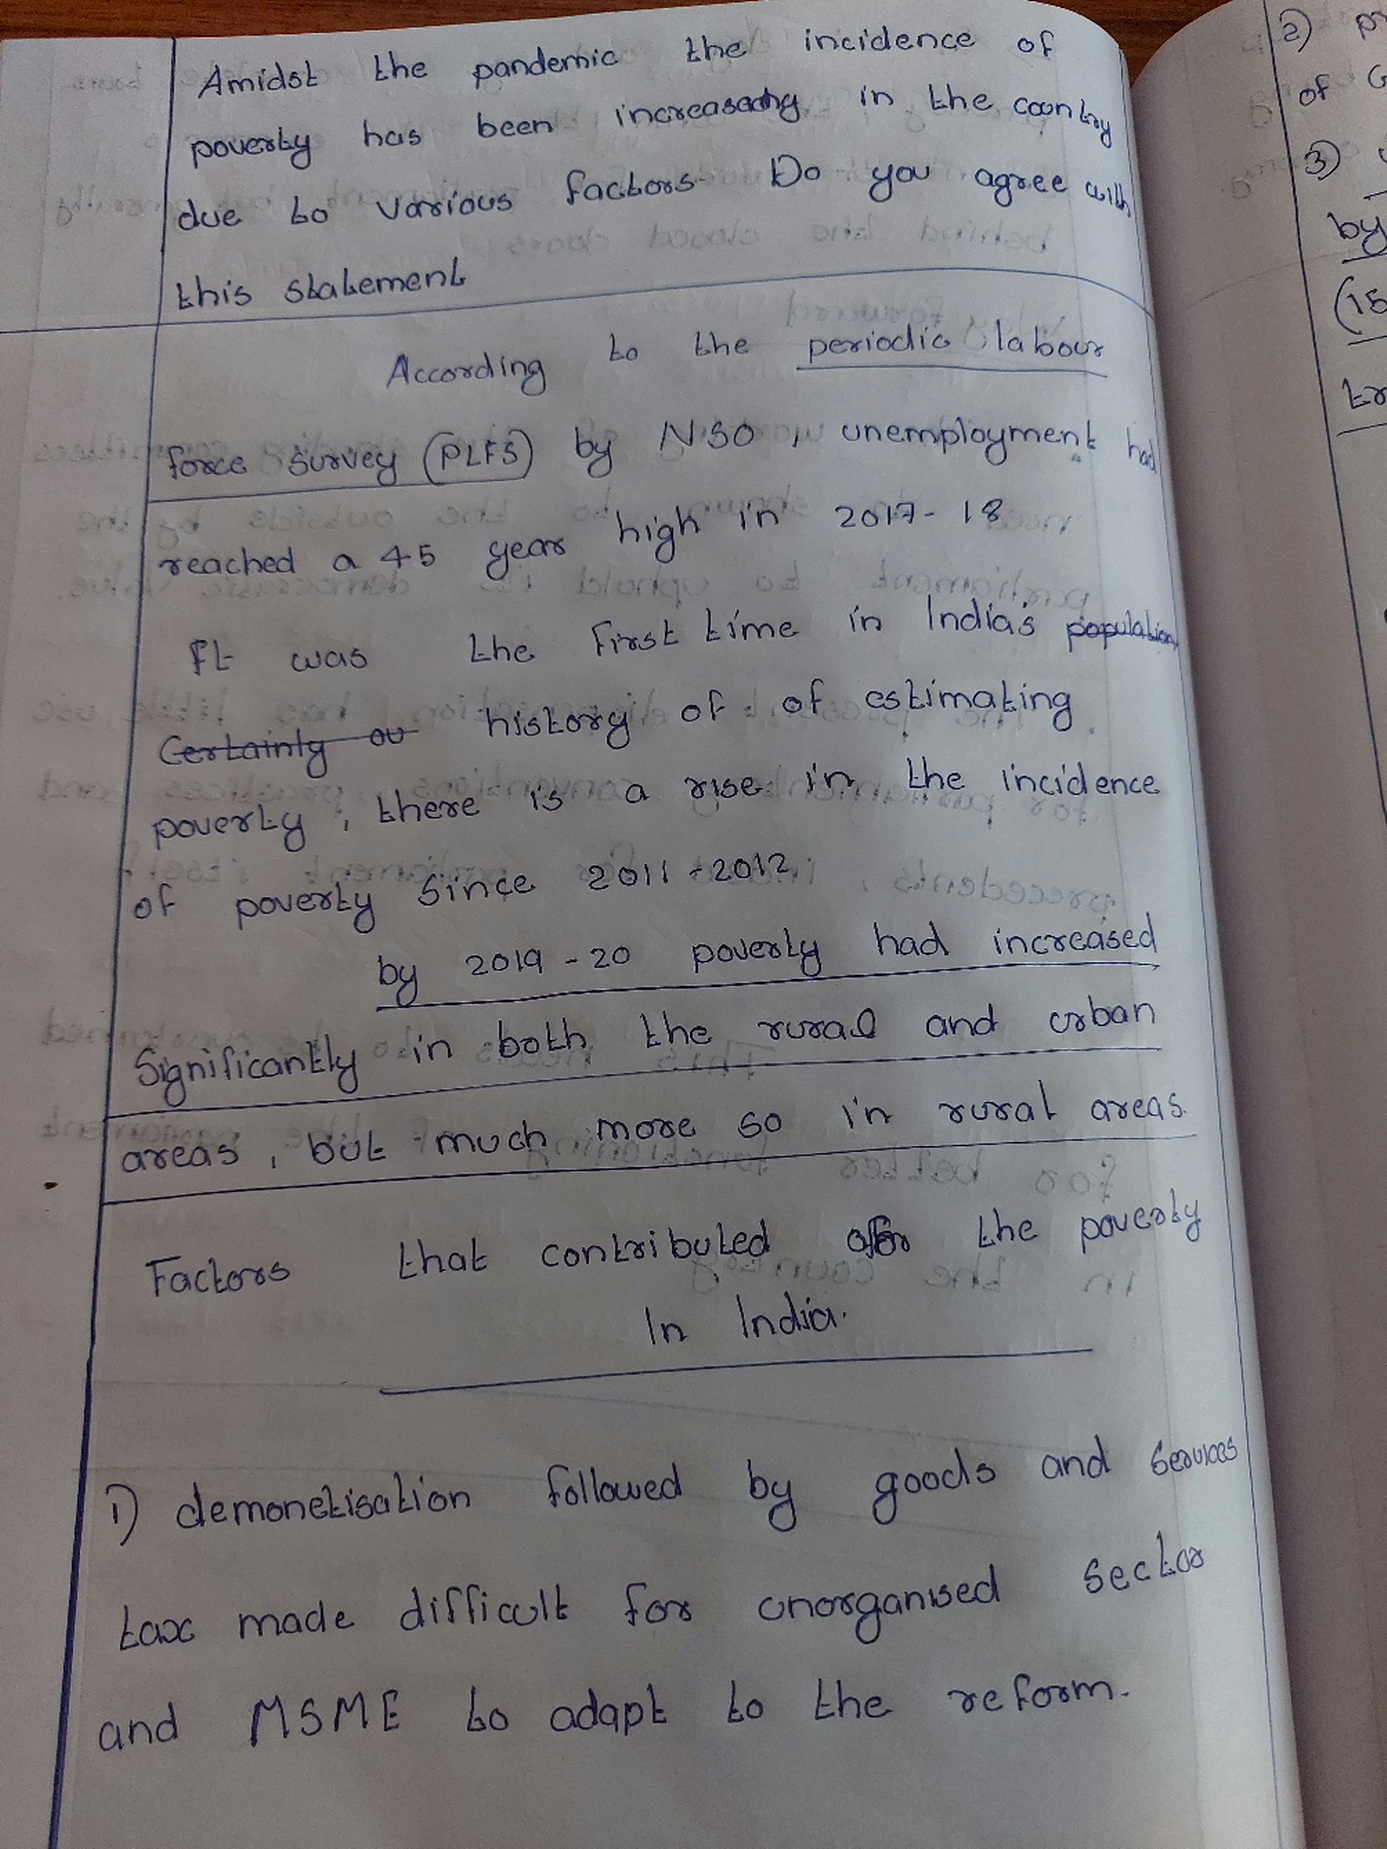 Amidst the pandemic the incidence of
poverty has been increasing in the country
due to various factors. Do you agree with
this statement
According to the periodic labour
force survey (PLFS) by NSO, unemployment had
reached a 45 year high in 2017-18
It was the first time in India's population
Certainly ou history of of estimating
poverty, there is a rise in the incidence
of poverty since 2011-2012.
by 2019-20 poverty had increased
Significantly in both the rural and urban
areas, but much more so in rural areas.
Factors that contributed for the poverty
In India.
1) demonetisation followed by goods and services
tax made difficult for unorganised sector
and MSME to adapt to the reform.
2)
of
3)
by
(15